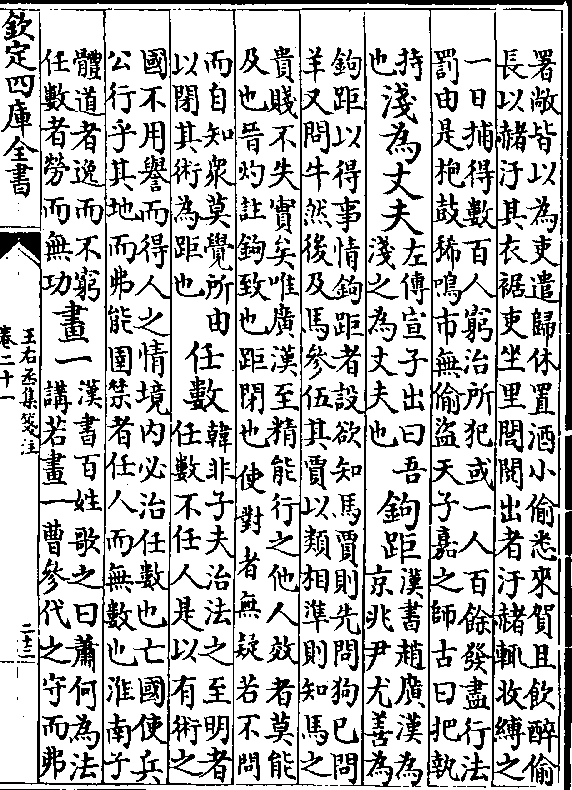 署敞皆以為吏遣歸休置酒小偷悉來賀且飲醉偷
長以赭汙其衣裾吏坐里閭閲出者汙赭輒收縛之
一日捕得數百人窮治所犯或一人百餘發盡行法
罰由是枹鼓稀鳴市無偷盜天子嘉之師古曰把執
持
也
淺為丈夫
左傳宣子出曰吾
淺之為丈夫也
鉤距
漢書趙廣漢為
京兆尹尤善為
鉤距以得事情鉤距者設欲知馬賈則先問狗已問
羊又問牛然後及馬參伍其賈以類相準則知馬之
貴賤不失實矣唯廣漢至精能行之他人效者莫能
及也晉灼註鉤致也距閉也使對者無疑若不問
而自知衆莫覺所由
以閉其術為距也
任數
韓非子夫治法之至明者
任數不任人是以有術之
國不用譽而得人之情境内必治任數也亡國使兵
公行乎其地而弗能圉禁者任人而無數也淮南子
體道者逸而不窮
任數者勞而無功
畫一
漢書百姓歌之曰蕭何為法
講若畫一曹參代之守而弗
欽定四庫全書
王右丞集箋注
卷二十一
二十二